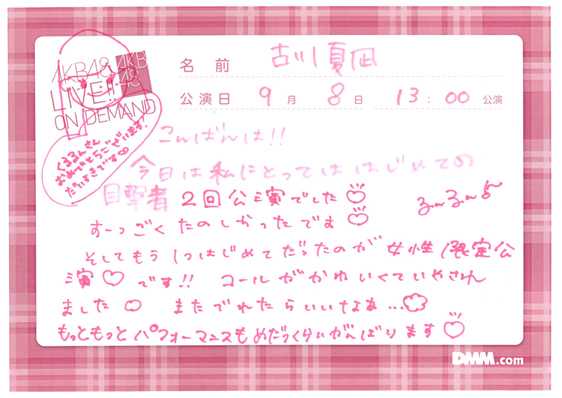 AKB48 AKB48
LIVE!!
ON DEMAND
名前 古川夏凪
公演日 9月 8日 13:00 公演
くるるんさん
おめでとうございます!
だいすきです♡
こんばんは!!
今日は私にとってははじめての
目撃者 2回公演でした♡
るんるん♪
すーっごくたのしかったです♡
そしてもう1つはじめてだったのが 女性限定公
演♡です!! コールがかわいくていやされ
ました♡ またでれたらいいなぁ...
もっともっとパフォーマンスもめだつくらいがんばります♡
DMM.com